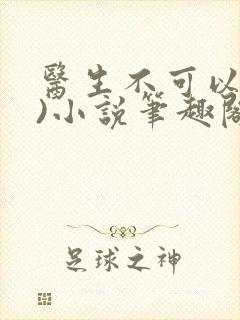 醫生不可以
)小說筆趣閣
足球之神